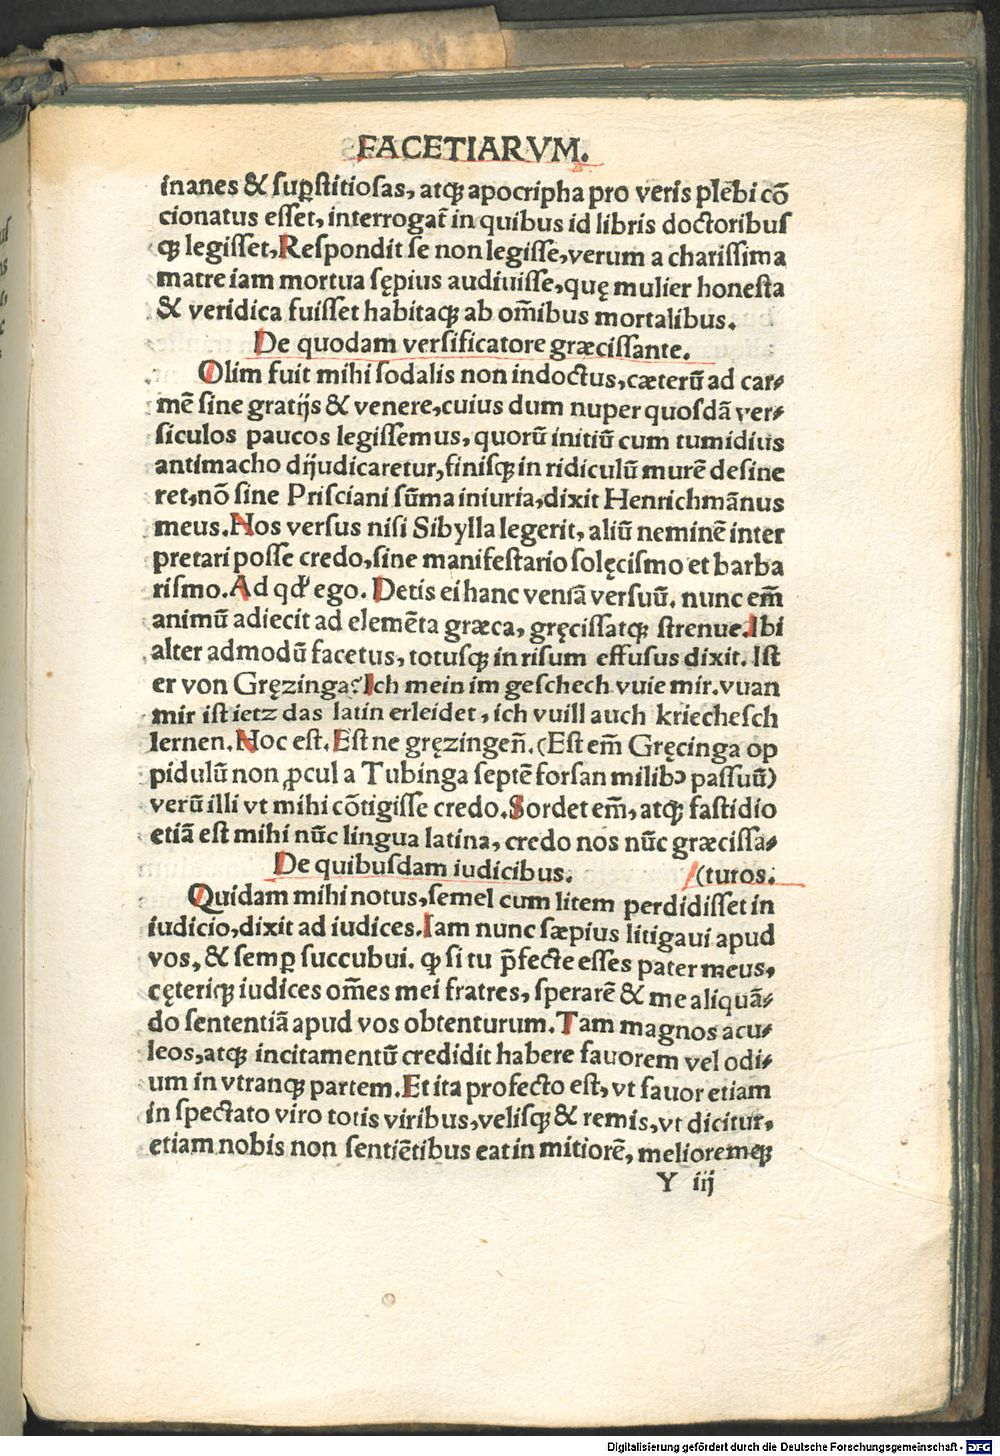 FACETIARVM.
inanes & suꝑstitiosas, atqꝫ apocripha pro veris plebi cō
cionatus esset, interrogat̄ in quibus id libris doctoribus
qꝫ legisset, Respondit se non legisse, verum a charissima
matre iam mortua sępius audiuisse, quę mulier honesta
& veridica fuisset habitaqꝫ ab om̄ibus mortalibus.
De quodam versificatore græcissante.
Olim fuit mihi sodalis non indoctus, cæterū ad car⸗
mē sine gratijs & venere, cuius dum nuper quosdā ver⸗
siculos paucos legissemus, quorū initiū cum tumidius
antimacho dijudicaretur, finisqꝫ in ridiculū murē desine
ret, nō sine Prisciani sūma iniuria, dixit Henrichmānus
meus. Nos versus nisi Sibylla legerit, aliū neminē inter
pretari posse credo, sine manifestario solęcismo et barba
rismo. Ad qđ ego. Detis ei hanc veniā versuū. nunc em̄
animū adiecit ad elemēta græca, gręcissatqꝫ strenue. Ibi
alter admodū facetus, totusqꝫ in risum effusus dixit. Ist
er von Gręzinga? Ich mein im geschech vuie mir. vuan
mir ist ietz das latin erleidet, ich vuill auch kriechesch
lernen. Hoc est. Est ne gręzingeñ. (Est em̄ Gręcinga op
pidulū non ꝓcul a Tubinga septē forsan milibꝰ passuū)
verū illi vt mihi cōtigisse credo. Sordet em̄, atqꝫ fastidio
etiā est mihi nūc lingua latina, credo nos nūc græcissa⸗
De quibusdam iudicibus. (turos.
Quidam mihi notus, semel cum litem perdidisset in
iudicio, dixit ad iudices. Iam nunc sæpius litigaui apud
vos, & semꝑ succubui. ꝙ si tu p̄fecte esses pater meus,
cęteriqꝫ iudices om̄es mei fratres, sperarē & me aliquā⸗
do sententiā apud vos obtenturum. Tam magnos acu⸗
leos, atqꝫ incitamentū credidit habere fauorem vel odi⸗
um in vtranqꝫ partem. Et ita profecto est, vt fauor etiam
in spectato viro totis viribus, velisqꝫ & remis, vt dicitur,
etiam nobis non sentiētibus eat in mitiorē, melioremqꝫ
Y iij
Digitalisierung gefördert durch die Deutsche Forschungsgemeinschaft - DFG